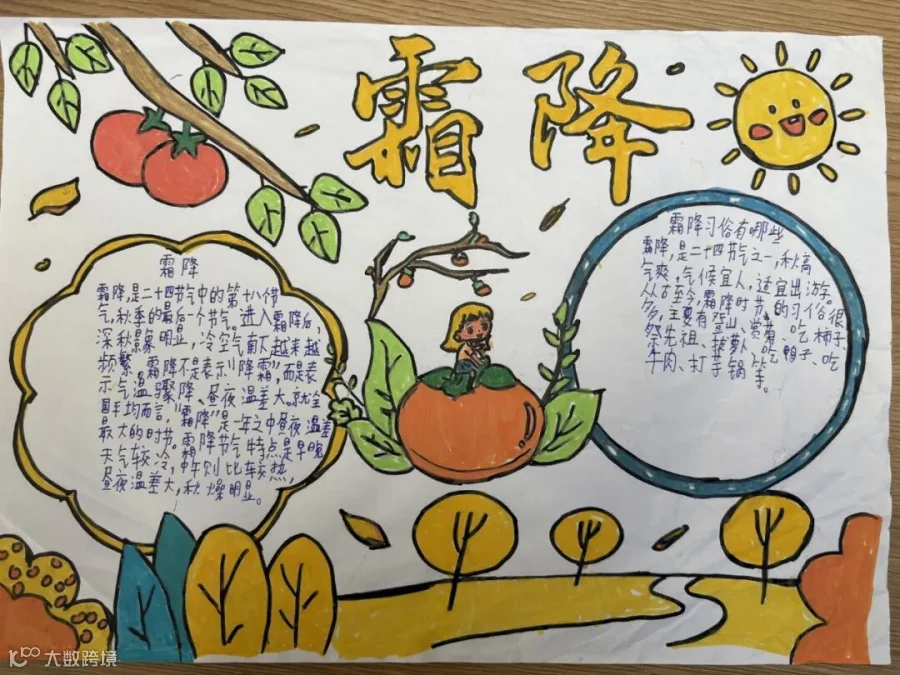 霜降
霜降
霜降,是二十四节气中的第十八个节
气,秋季的最后一个节气。进入霜降后,
深秋景象明显,冷空气南下越来越
频繁。霜降不是表示"降霜",而是表
示气温骤降、昼夜温差大。就全
国平均而言,"霜降"是一年之中昼夜温差
最大的时节。霜降节气特点是早晚
天气较冷,中午则比较热,
昼夜温差大,秋燥明显。
霜降习俗有哪些
霜降,是二十四节气之一,秋高
气爽,气候宜人,适宜出游。
从古至今,霜降时节的习俗很
多,主要有登山、赏菊、吃柿子、
祭先祖、拔萝卜、吃鸭子、吃
牛肉、打芋锅等。
大数跨境